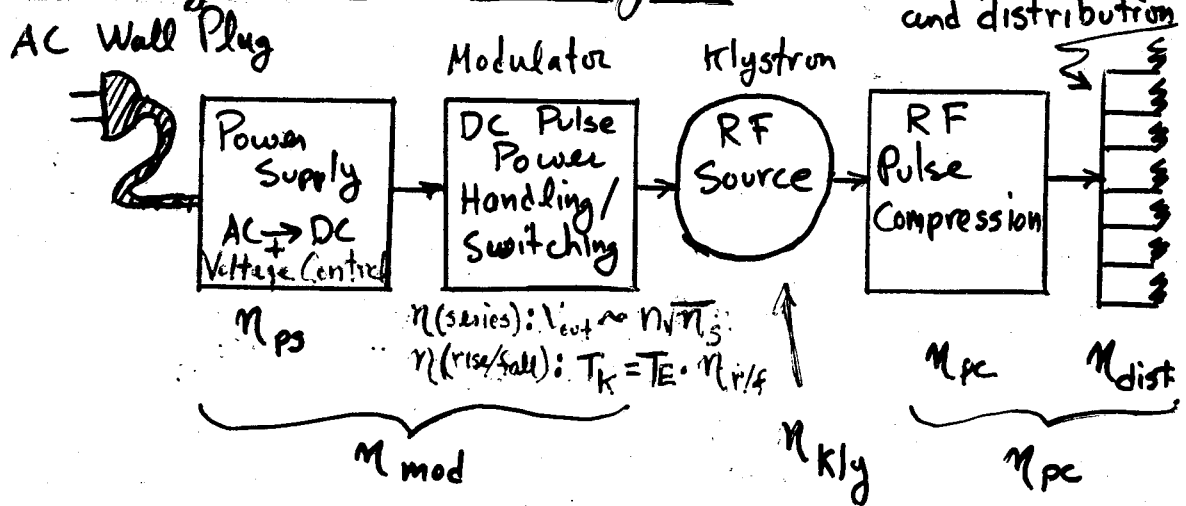 and distribution
AC Wall Plug
Modulator
Klystron
Power
Supply
AC → DC
+
Voltage Control
DC Pulse
Power
Handling/
Switching
RF
Source
RF
Pulse
Compression
η ps
η(series): Vout ~ n√ηs
η(rise/fall): TK = TE · ηr/f
η pc
η dist
η mod
η kly
η pc